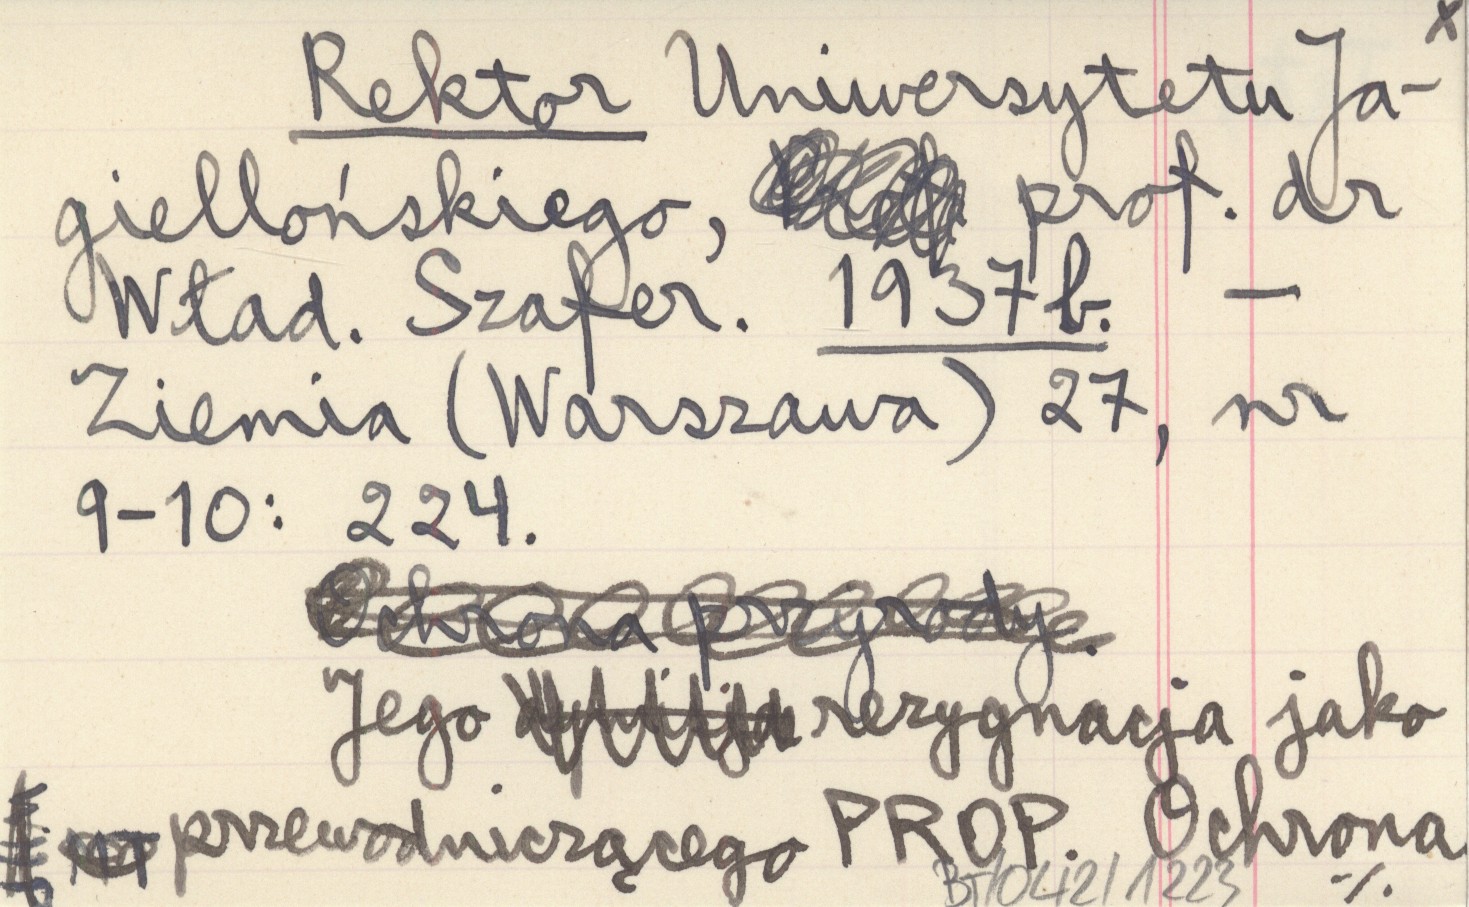 x
Rektor Uniwersytetu Ja-
giellońskiego, prof. dr
Wład. Szafer. 1937b. —
Ziemia (Warszawa) 27, nr
9-10: 224.
Ochrona przyrody.
Jego rezygnacja jako
przewodniczącego PROP. Ochrona
BT/042/1223 -/.